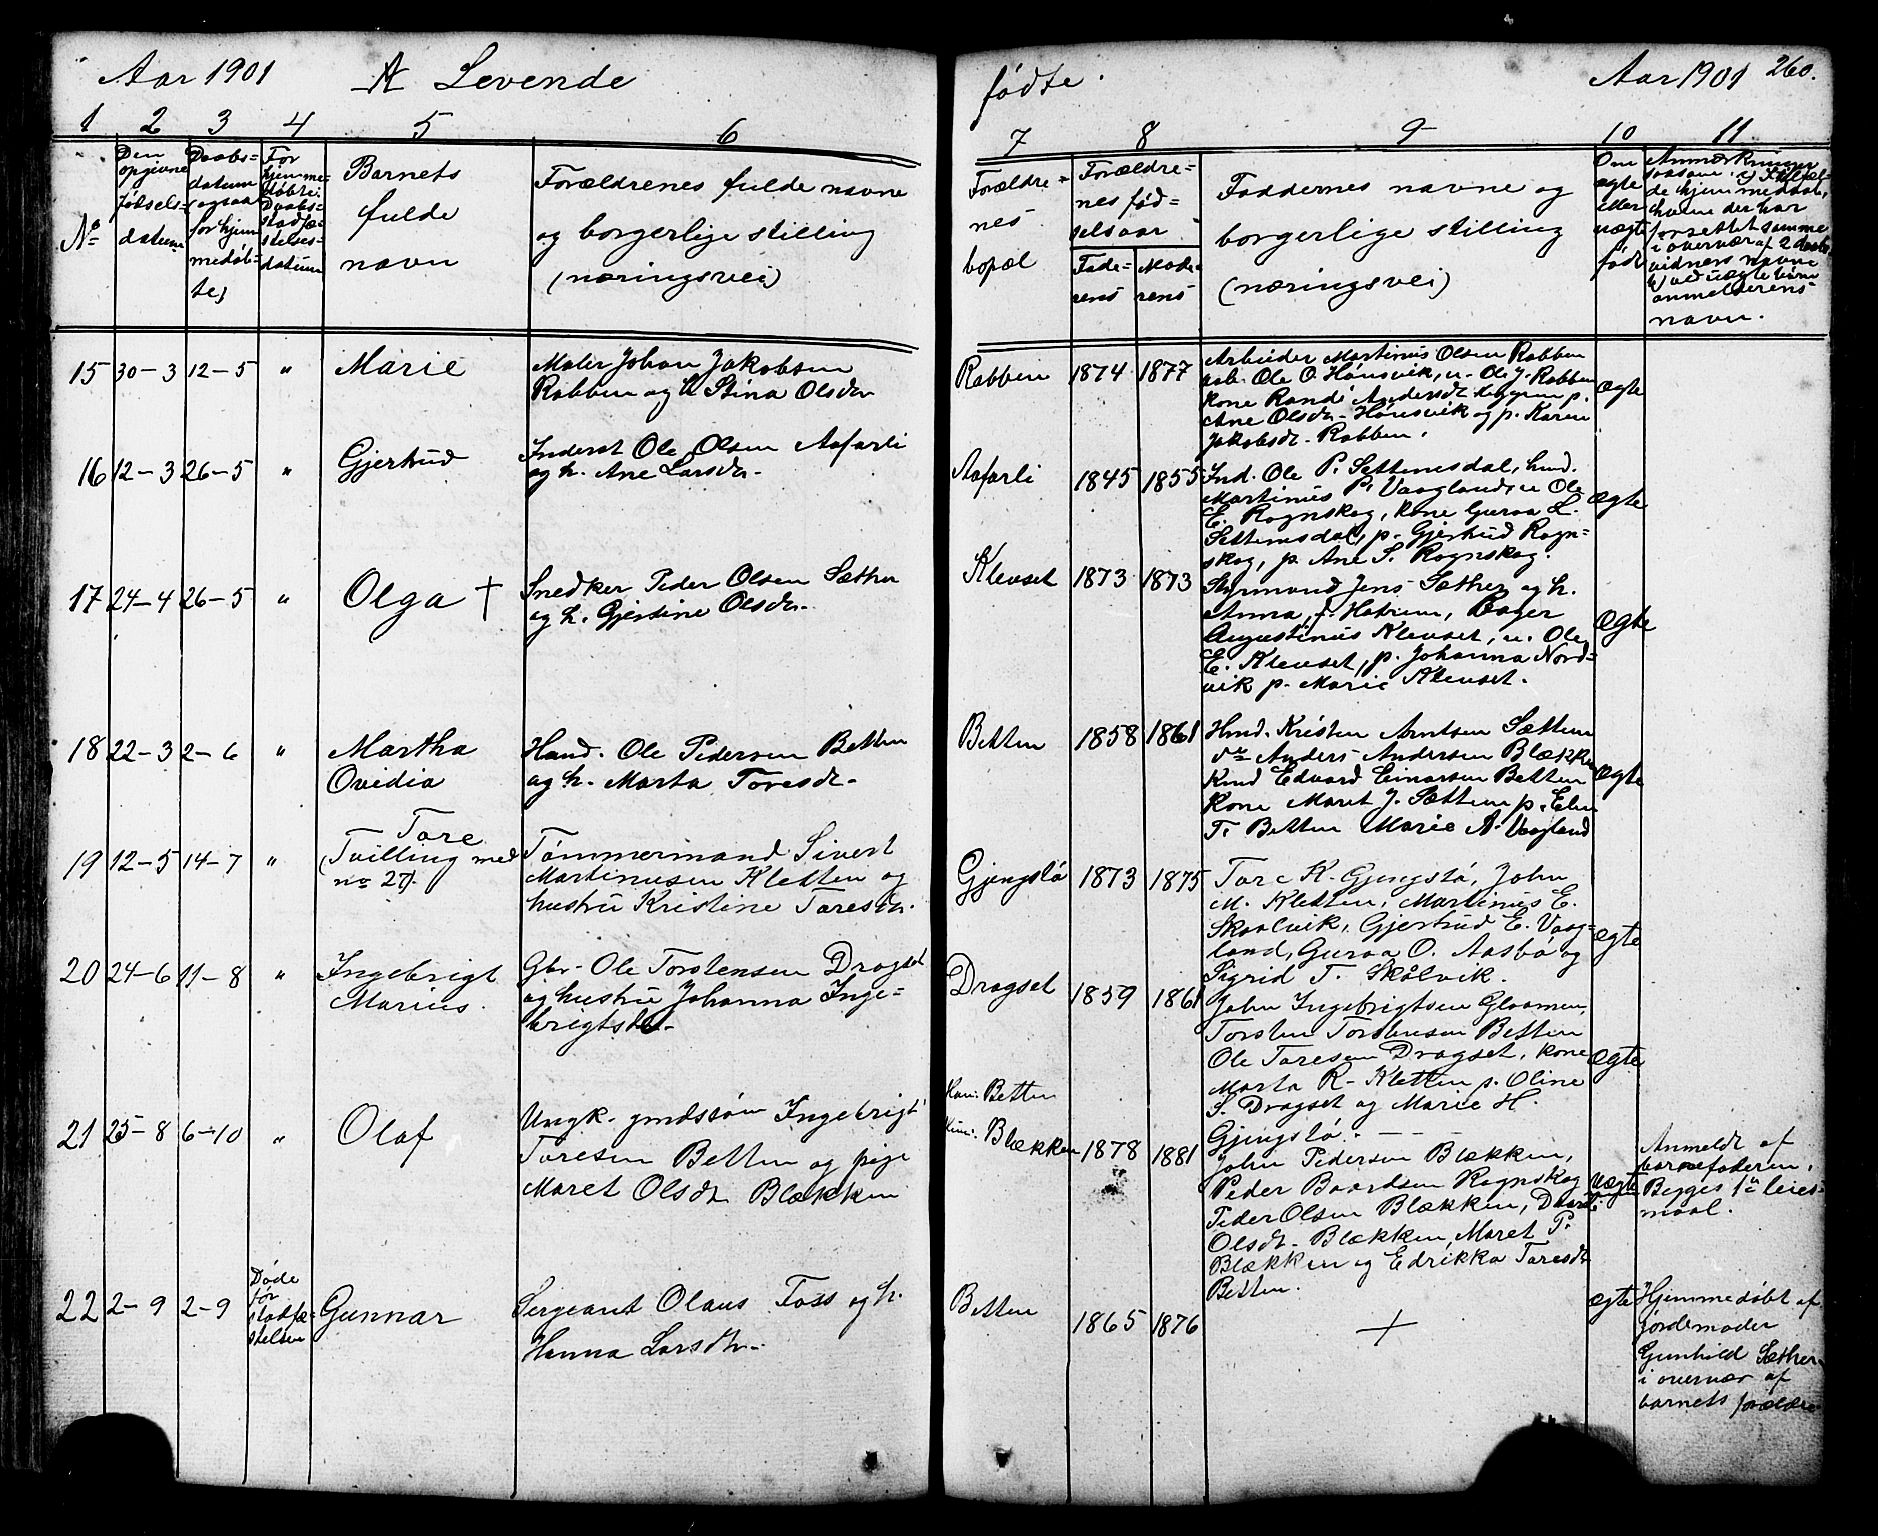 Aar 1901
A Levende
fødte.
Aar 1901
260.
1 2 3 4 5 6
7 8 9 10 11
No
Den opgivne fødsels-datum
Daabs-datum (ogsaa for hjemmedøbte)
For hjemmedøbte: Daabs-stadfæstelses-datum
Barnets
fulde
navn
Forældrenes fulde navne
og borgerlige stilling
(næringsvei)
Forældre-
nes
bopæl
Forældre-
nes fød-
selsaar
Fade-
rens
Mode-
rens
Faddernes navne og
borgerlige stilling
(næringsvei)
Om
ægte
eller
uægte
født
Anmærkninger
saasom: a) I tilfæl-
de hjemmedaab,
hvem der har
forrettet samme
i overvær af 2 daabs-
vidners navne
b) ved uægte børn
anmelderens
navn.
15 30-3 12-5 " Marie
Maler Johan Jakobsen
Rabben og h Stina Olsdtr
Rabben 1874 1877
Arbeider Martinus Olsen Rabben
Ole O. Hønsvik, u. Ole J. Rabben
kone Randi Andersdt
Ane Olsdtr Hønsvik og p. Karen
Jakobsdt. Rabben.
ægte
16 12-3 26-5 " Gjertrud
Inderst Ole Olsen Aafarli
og h. Ane Larsdtr.
Aafarli 1845 1855
Ind. Ole P. Settemsdal, hmd.
Martinus P. Vaagland, u Ole
E. Rognskog, kone Guroa L.
Settemsdal, p. Gjertrud Rogn-
skog, p. Ane S. Rognskog.
ægte
17 24-4 26-5 " Olga †
Snedker Peder Olsen Sæther
og h. Gjertine Olsdtr.
Klevset 1873 1873
Styrmand Jens Sæther og h.
Anna, Bager
Augustinus Klevset, u. Ole
E. Klevset, p. Johanna Nord-
vik p. Marie Klevset.
ægte
18 22-3 2-6 " Martha
Ovidia
Hmd. Ole Pedersen Betten
og h. Marta Toresdt.
Betten 1858 1861
Hmd. Kristen Arntsen Sættem
do Anders Andersen Blækken
Edvard Einarsen Betten
kone Maret J. Sættem p. Elen
T. Betten Marie A. Vaagland
ægte
19 12-5 14-7 " Tore
(Tvilling med
no 27).
Tømmermand Sivert
Martinusen Kletten og
hustru Kristine Toresdtr.
Gjengstø 1873 1875
Tore K. Gjengstø, John
M. Kletten, Martinus E.
Skaalvik, Gjertrud E. Vaag-
land, Guroa O. Aasbø og
Sigrid T. Skålvik.
ægte
20 24-6 11-8 " Ingebrigt
Marius.
Gbr. Ole Torstensen Drogset
og hustru Johanna Inge-
brigtsdtr.
Drogset 1859 1861
John Ingebrigtsen Gloamen,
Torsten Torstensen Betten
Ole Toresen Drogset, kone
Marta R. Kletten p. Oline
S. Drogset og Marie H.
Gjengstø.
ægte
21 25-8 6-10 " Olaf
Ungk. gmdssøn Ingebrigt
Toresen Betten og pige
Maret Olsdt Blækken
Han: Betten
Hun: Blækken 1878 1881
John Pedersen Blækken,
Peder Baardsen Rognskog
Peder Olsen Blækken,
Olsdt. Blækken, Maret P.
Blækken og Edrikka Toresdt
Betten.
Uægte
Anmeldt af
barnefaderen.
Begges 1ste leier-
maal.
22 2-9 2-9 Døde
før
stadfæ-
stelsen
Gunnar
Sergeant Olaus Foss og h.
Hanna Larsdtr.
Betten 1865 1876
ægte
Hjemmedøbt af
jordemoder
Gunhild Sæther
i overvær af
barnets forældre